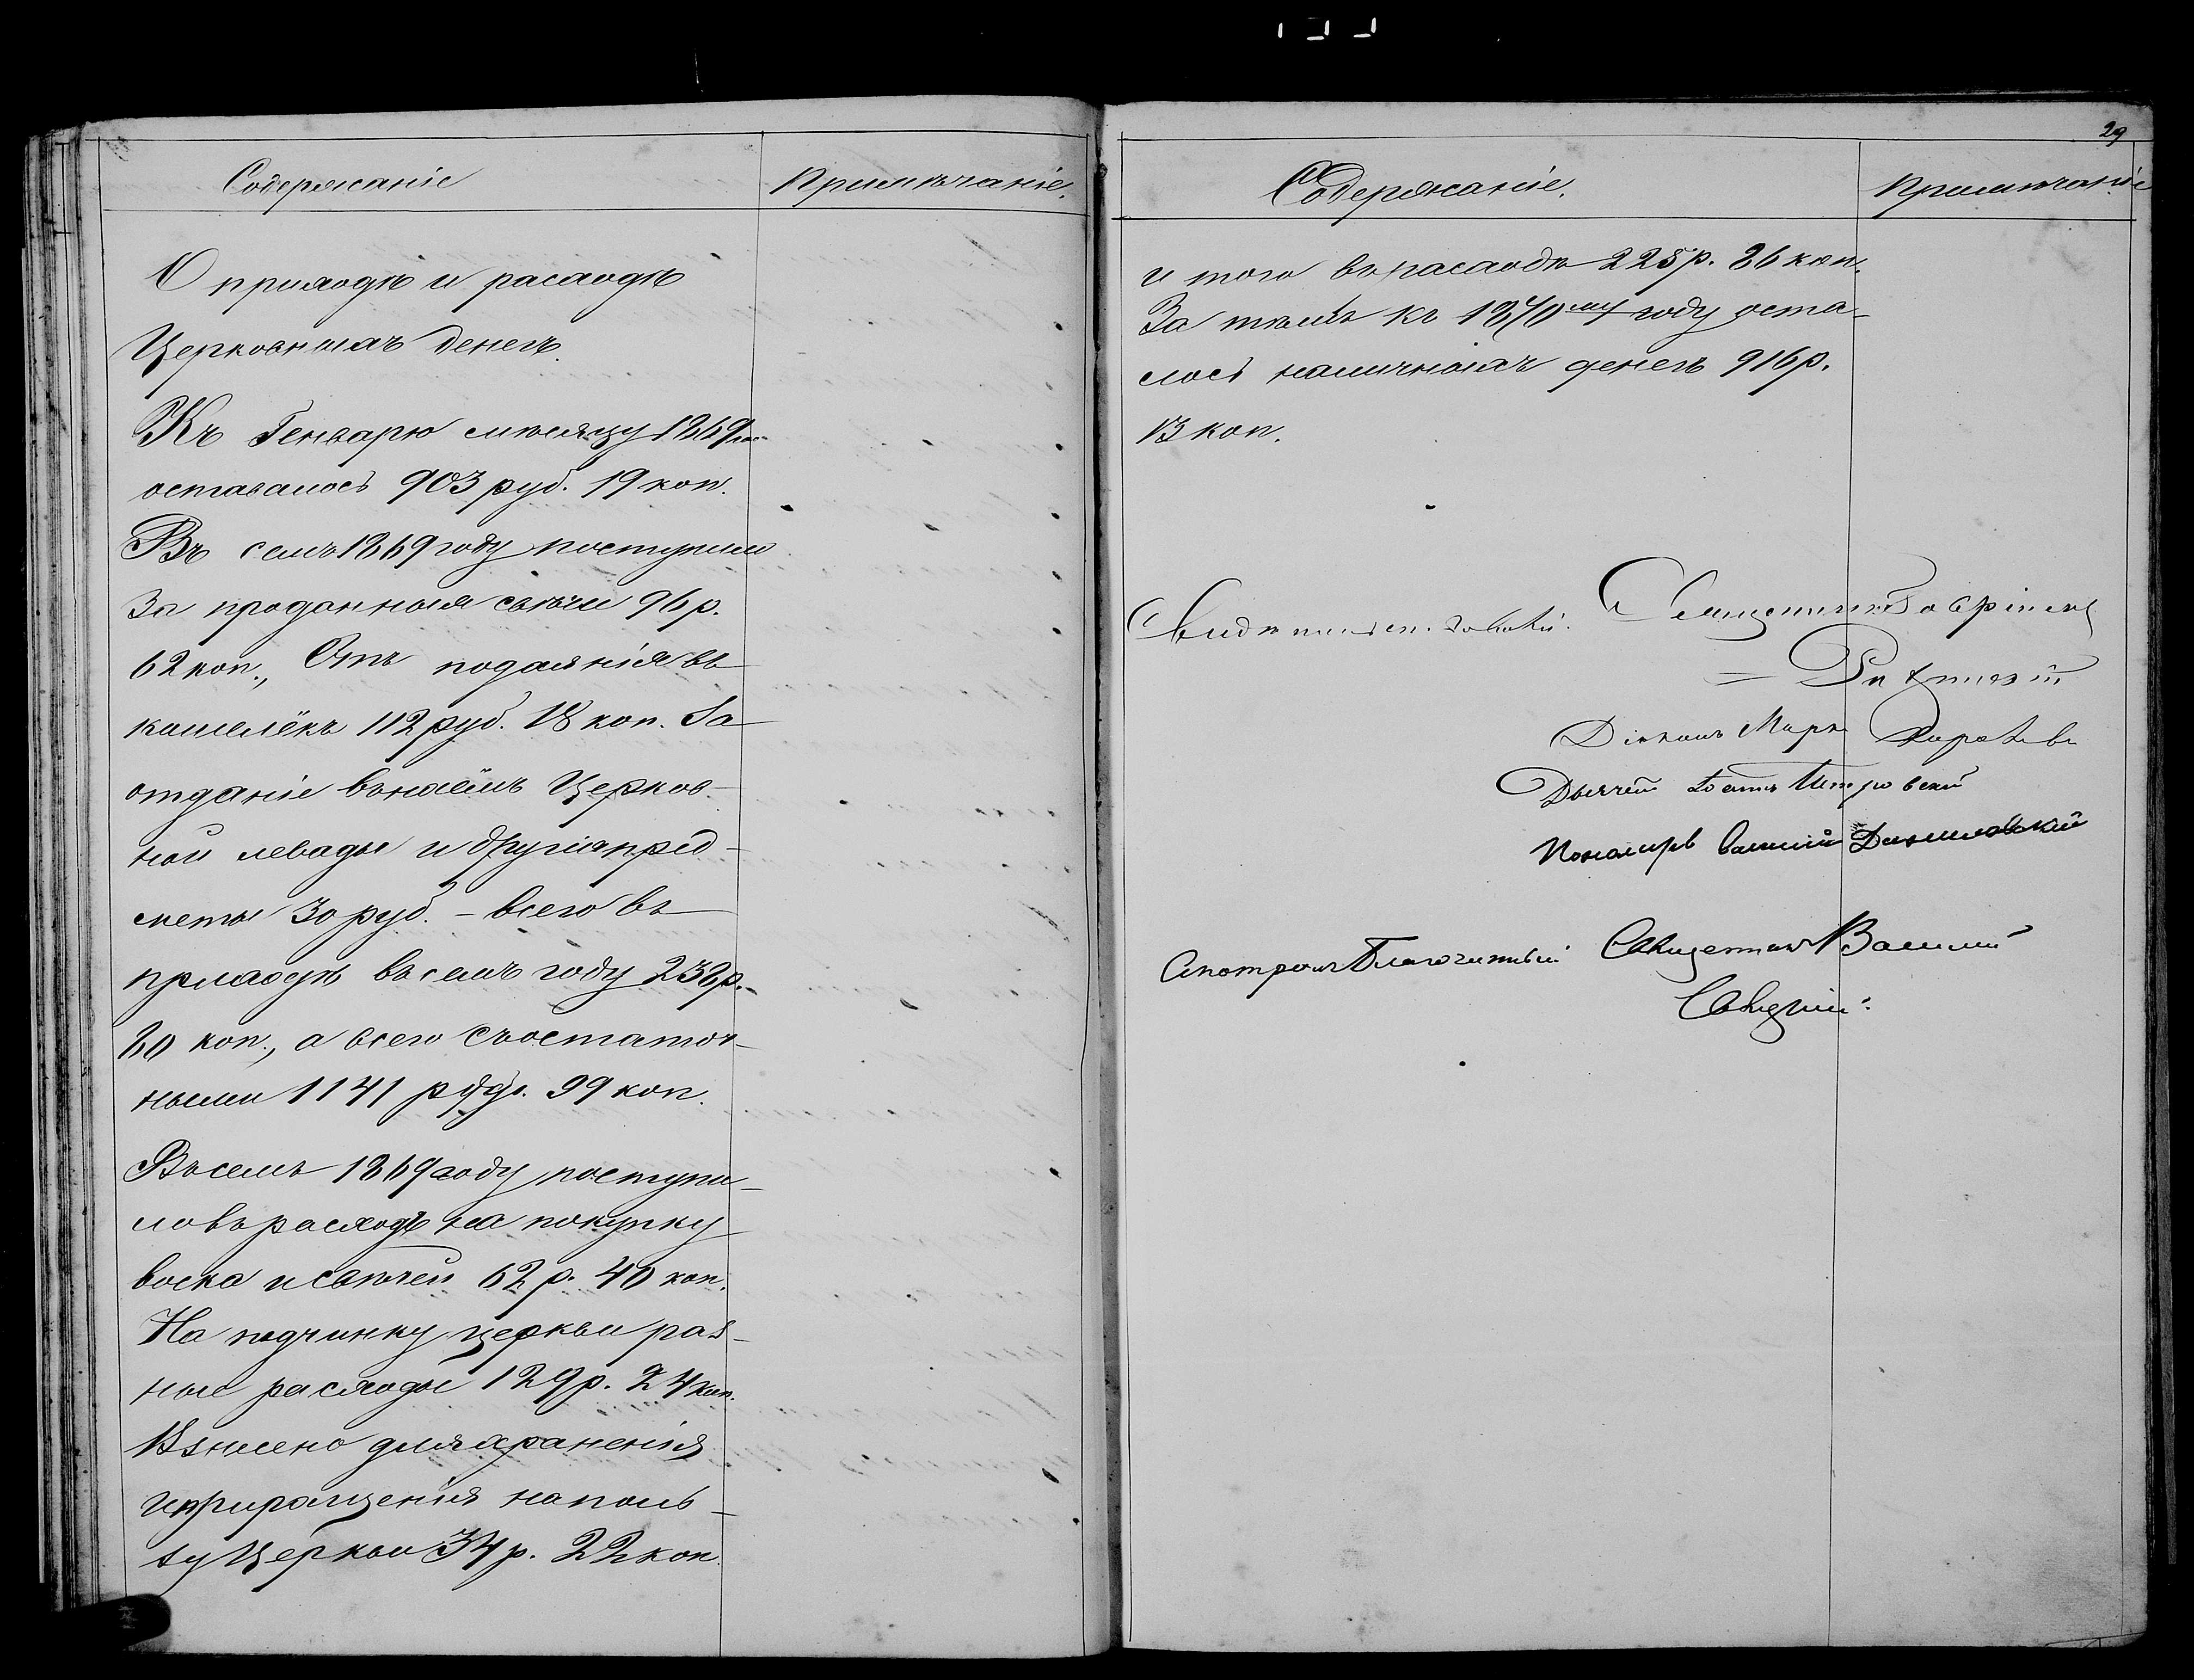 Содержаніе
Примѣчаніе.
О приходѣ и расходѣ
Церковныхъ денегъ.
Къ Генварю мѣсяцу 1869го
оставалось 903 руб. 19 коп.
Въ семъ 1869 году поступило
За проданныя свѣчи 96 р.
62 коп., Отъ подаянія въ
кошелёкъ 112 руб. 18 коп. За
отданіе въ наёмъ Церков-
ной левады и другія пред-
меты 30 руб. – всего въ
приходѣ въ семъ году 238 р.
80 коп., а всего съ остаточ-
ными 1141 руб. 99 коп.
Въ семъ 1869 году поступи-
ло въ расходъ на покупку
воска и свѣчей 62 р. 40 коп.
На подчинку церкви раз-
ные расходы 129 р. 24 коп.
Взнесено для храненія
и приращенія на поль-
зу Церкви 34 р. 22 коп.
29
Содержаніе.
Примѣчаніе
и того въ расходѣ 225 р. 86 коп.
За тѣмъ къ 1870му году оста-
лось наличныхъ денегъ 916 р.
13 коп.
Священникъ
Діаконъ Марк
Дьячекъ Петровскій
Пономарь Василій Данилевскій
Смотрѣлъ Благочинный Священникъ Василій